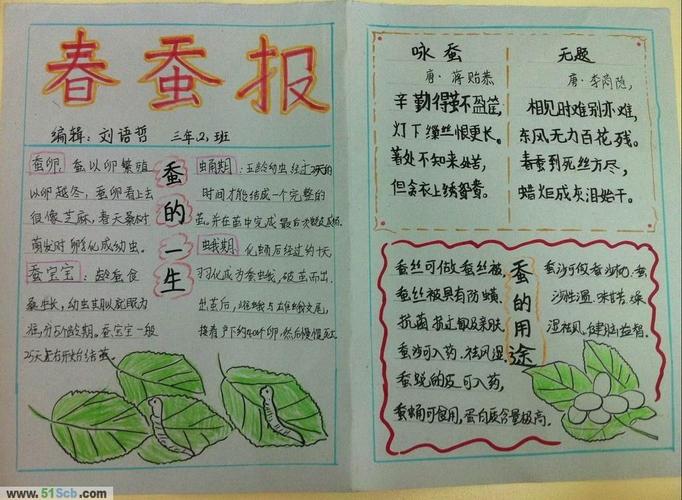 春蚕报
编辑：刘语哲 三年.2，班
蚕的一生
蚕卵：蚕以卵繁殖
以卵越冬，蚕卵看上去
很像芝麻，春天桑树
萌发时孵化成幼虫。
蚕宝宝：蚕食
桑生长，幼虫其以就眠为
准，分5个龄期。蚕宝宝一般
25天左右开始结茧。
蛹期：五龄幼虫经过2天的
时间才能结成一个完整的
茧。并在茧中完成最后
蛾期：化蛹后经过约十天
羽化成为蚕蛾，破茧而出。
出茧后，雌蛾与雄蛾交尾，
接着产下约400个卵，然后慢慢死去
咏蚕
唐·蒋贻恭
辛勤得茧不盈筐，
灯下缫丝恨更长。
著处不知来处苦，
但贪衣上绣鸳鸯。
无题
唐·李商隐，
相见时难别亦难，
东风无力百花残。
春蚕到死丝方尽，
蜡炬成灰泪始干。
蚕的用途
蚕丝可做蚕丝被。
蚕丝被具有防螨。
抗菌抗过敏及亲肤。
蚕沙可入药，祛风湿。
蚕蜕的皮可入药，
蚕蛹可食用，蛋白质含量极高。
蚕沙可做蚕沙枕，蚕
沙性温
湿祛风，健脑益智。
www.51Scb.com